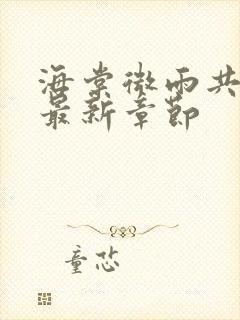 海棠微雨共
最新章节
童恣